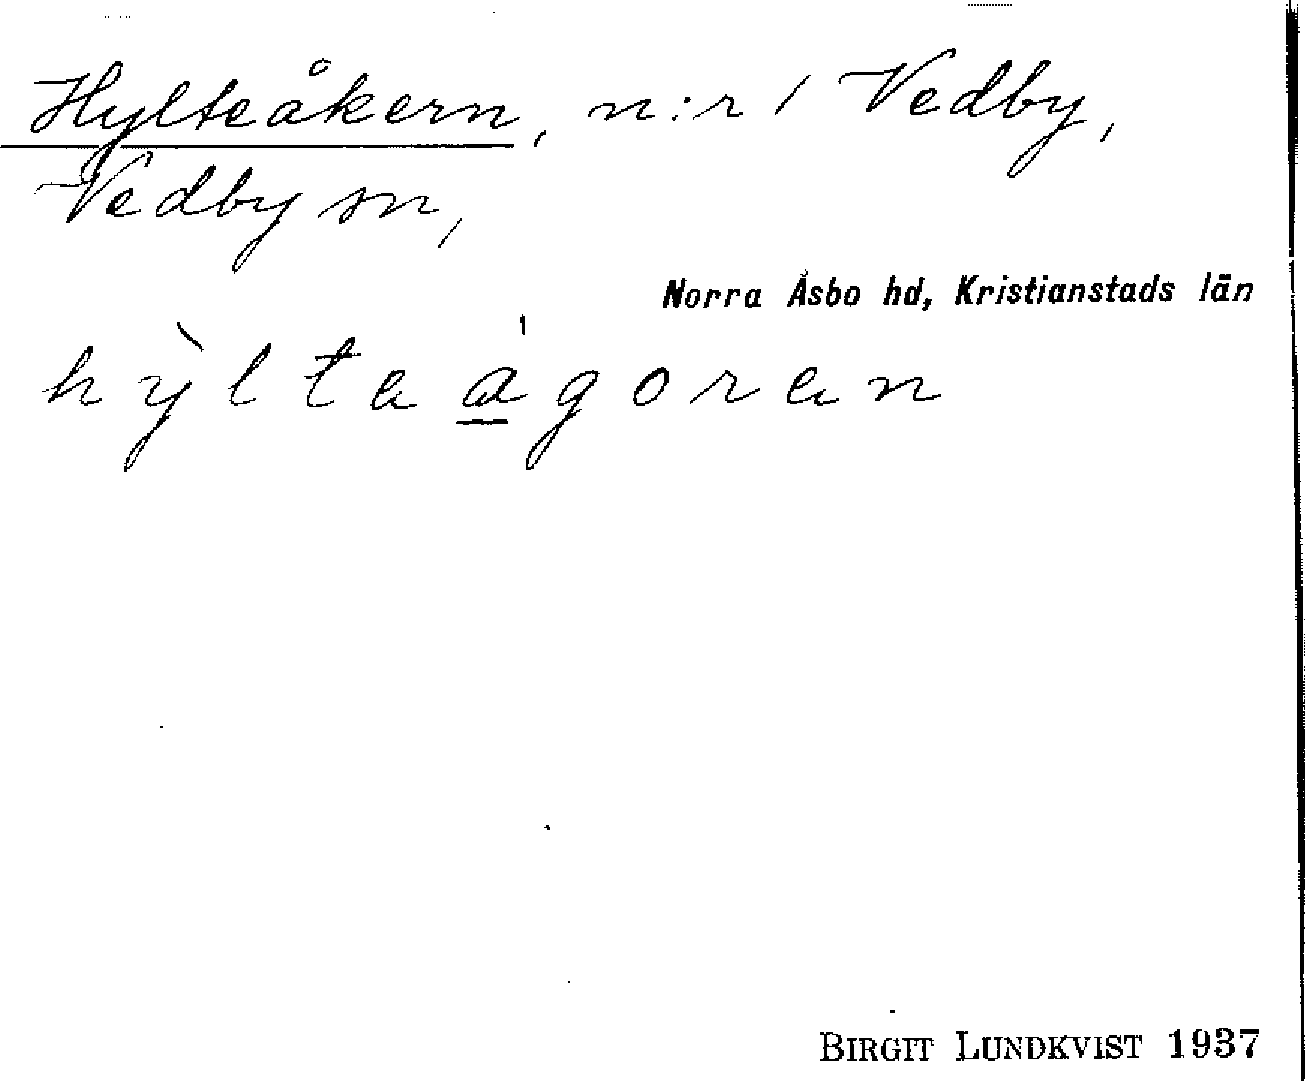 Hylteåkern, n:r 1 Vedby,
Vedby sn,
Norra Åsbo hd, Kristianstads län
hỳltaágoran
BIRGIT LUNDKVIST 1937